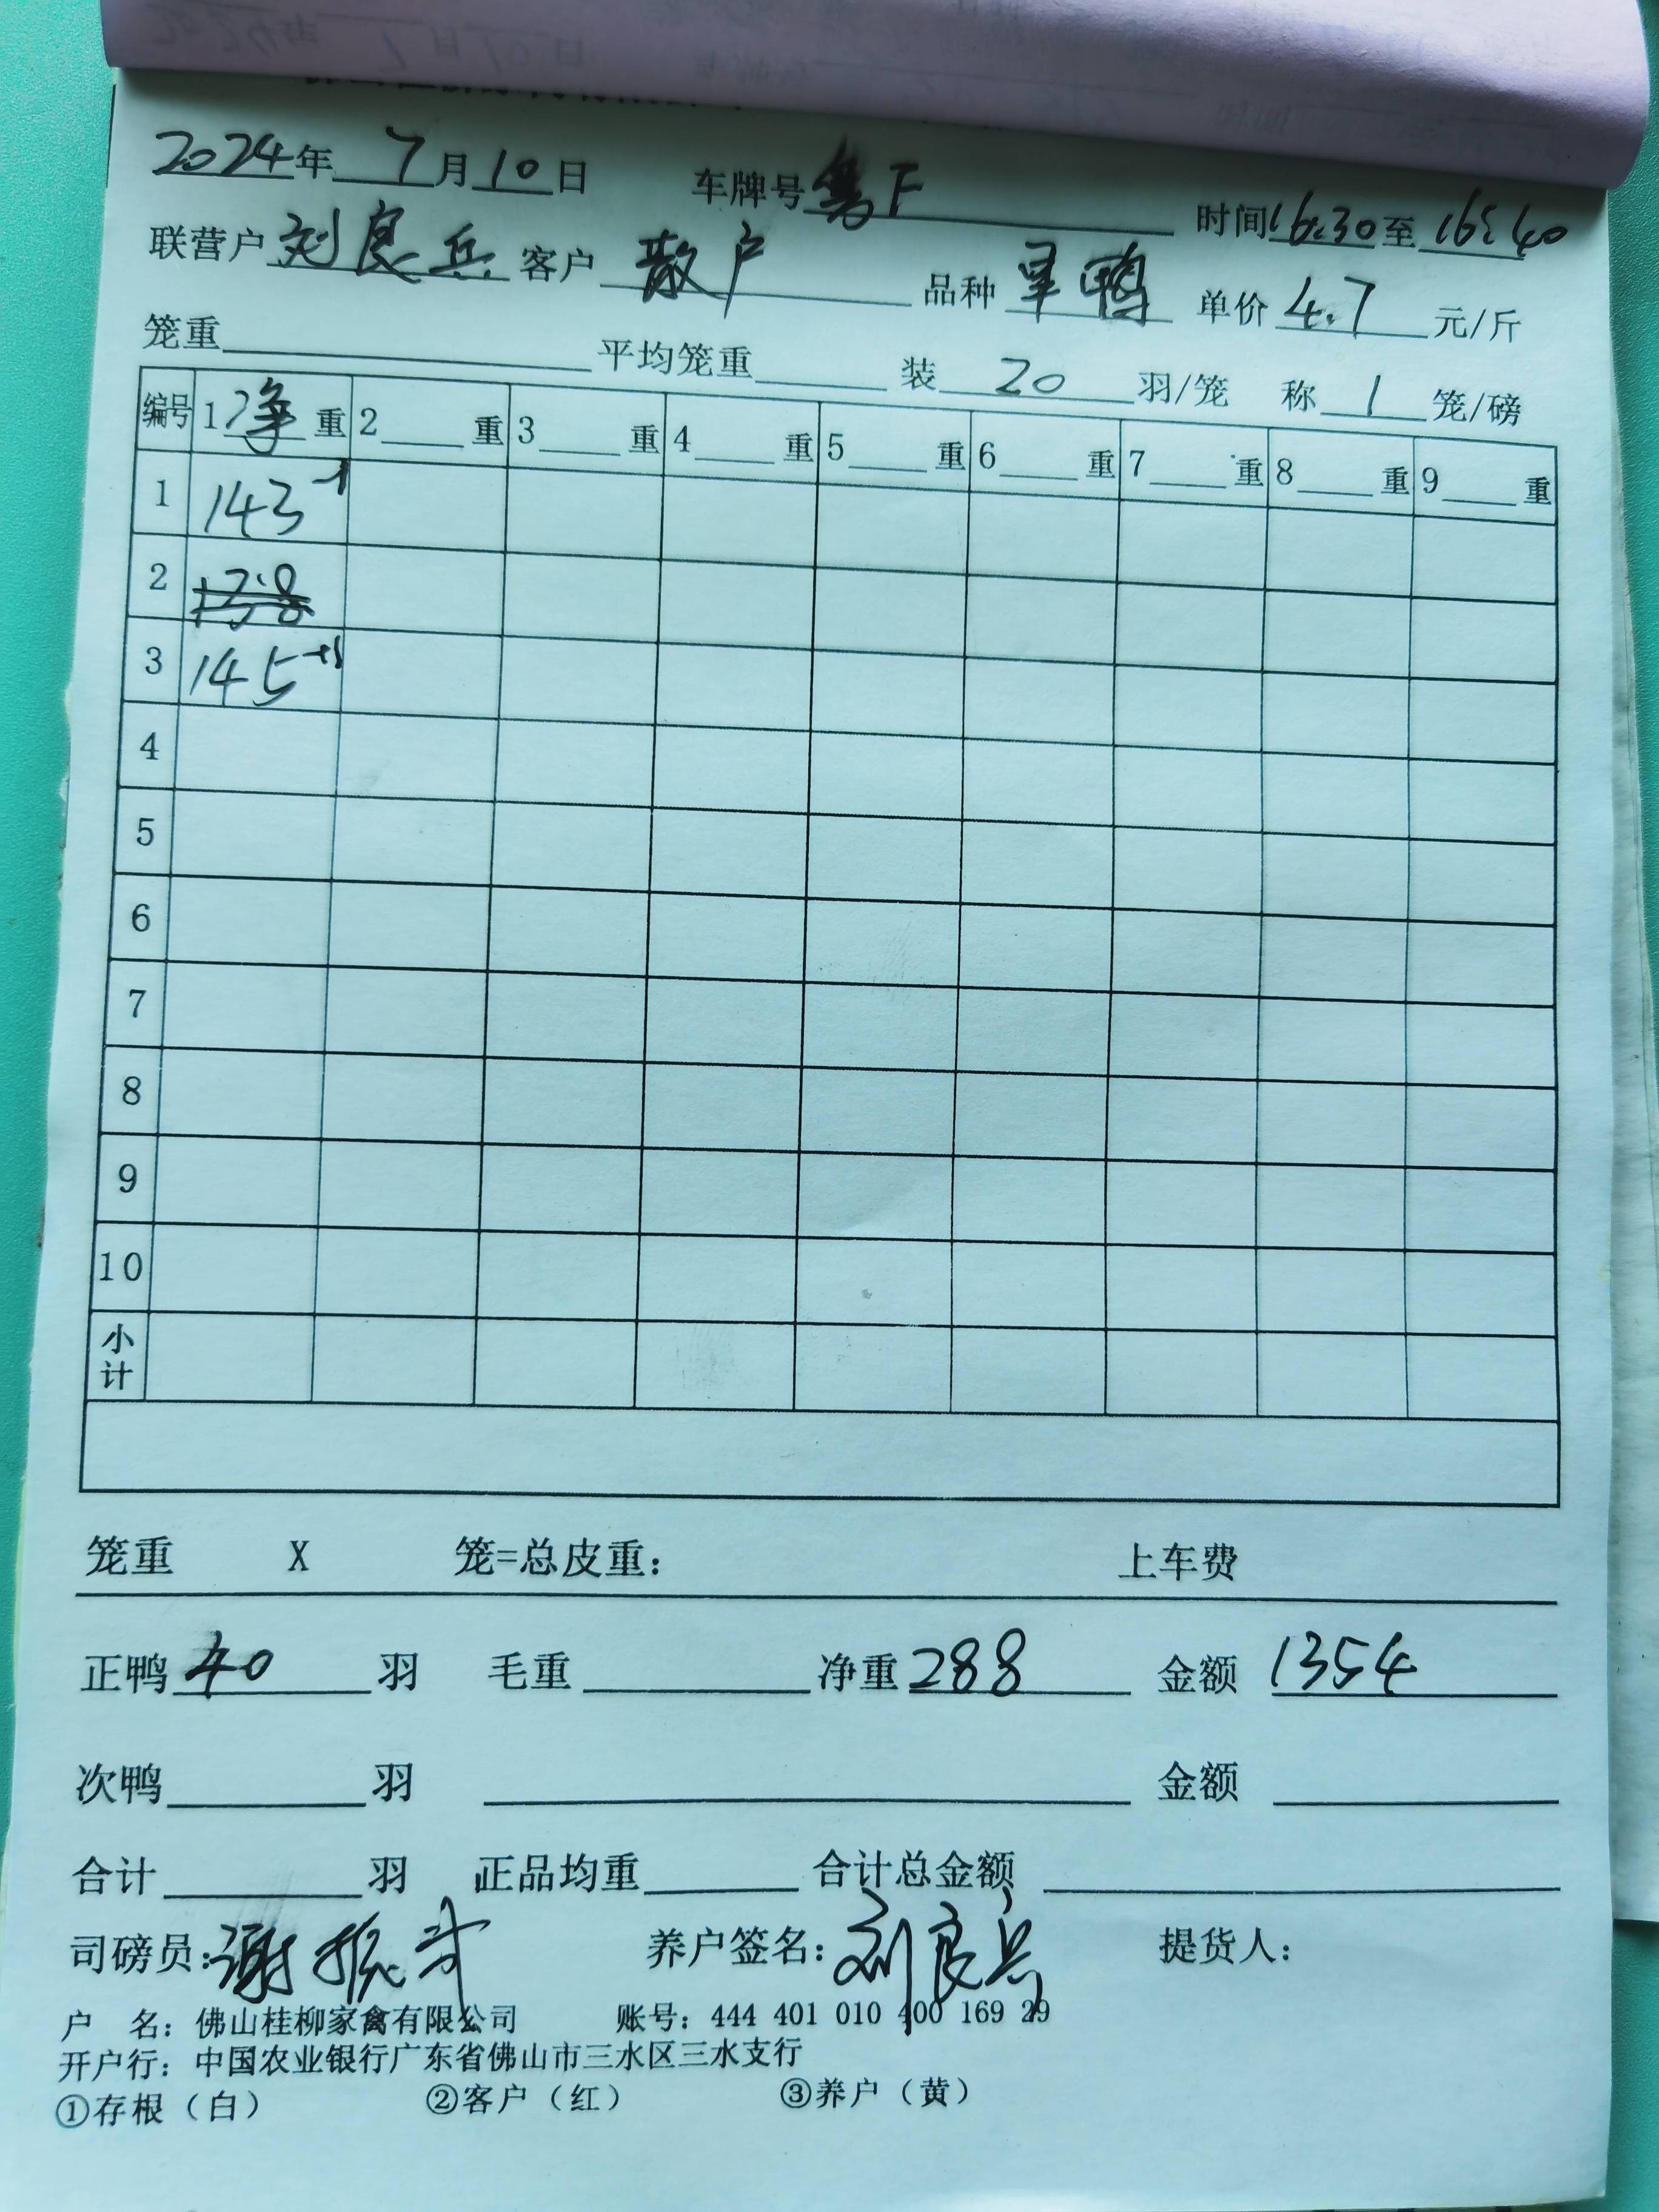 2024年 7月10日 车牌号 F 时间16:30至16:40
联营户 刘良兵 客户 散户 品种 旱鸭 单价 4.7 元/斤
笼重 平均笼重 装 20 羽/笼 称 1 笼/磅
编号 1 净 重 2 重 3 重 4 重 5 重 6 重 7 重 8 重 9 重
1 143
2
3 145
4
5
6
7
8
9
10
小计
笼重 X 笼=总皮重: 上车费
正鸭 40 羽 毛重 净重 288 金额 1354
次鸭 羽 金额
合计 羽 正品均重 合计总金额
司磅员: 谢振 养户签名: 刘良兵 提货人:
户 名: 佛山桂柳家禽有限公司 账号: 444 401 010 400 169 29
开户行: 中国农业银行广东省佛山市三水区三水支行
①存根（白） ②客户（红） ③养户（黄）